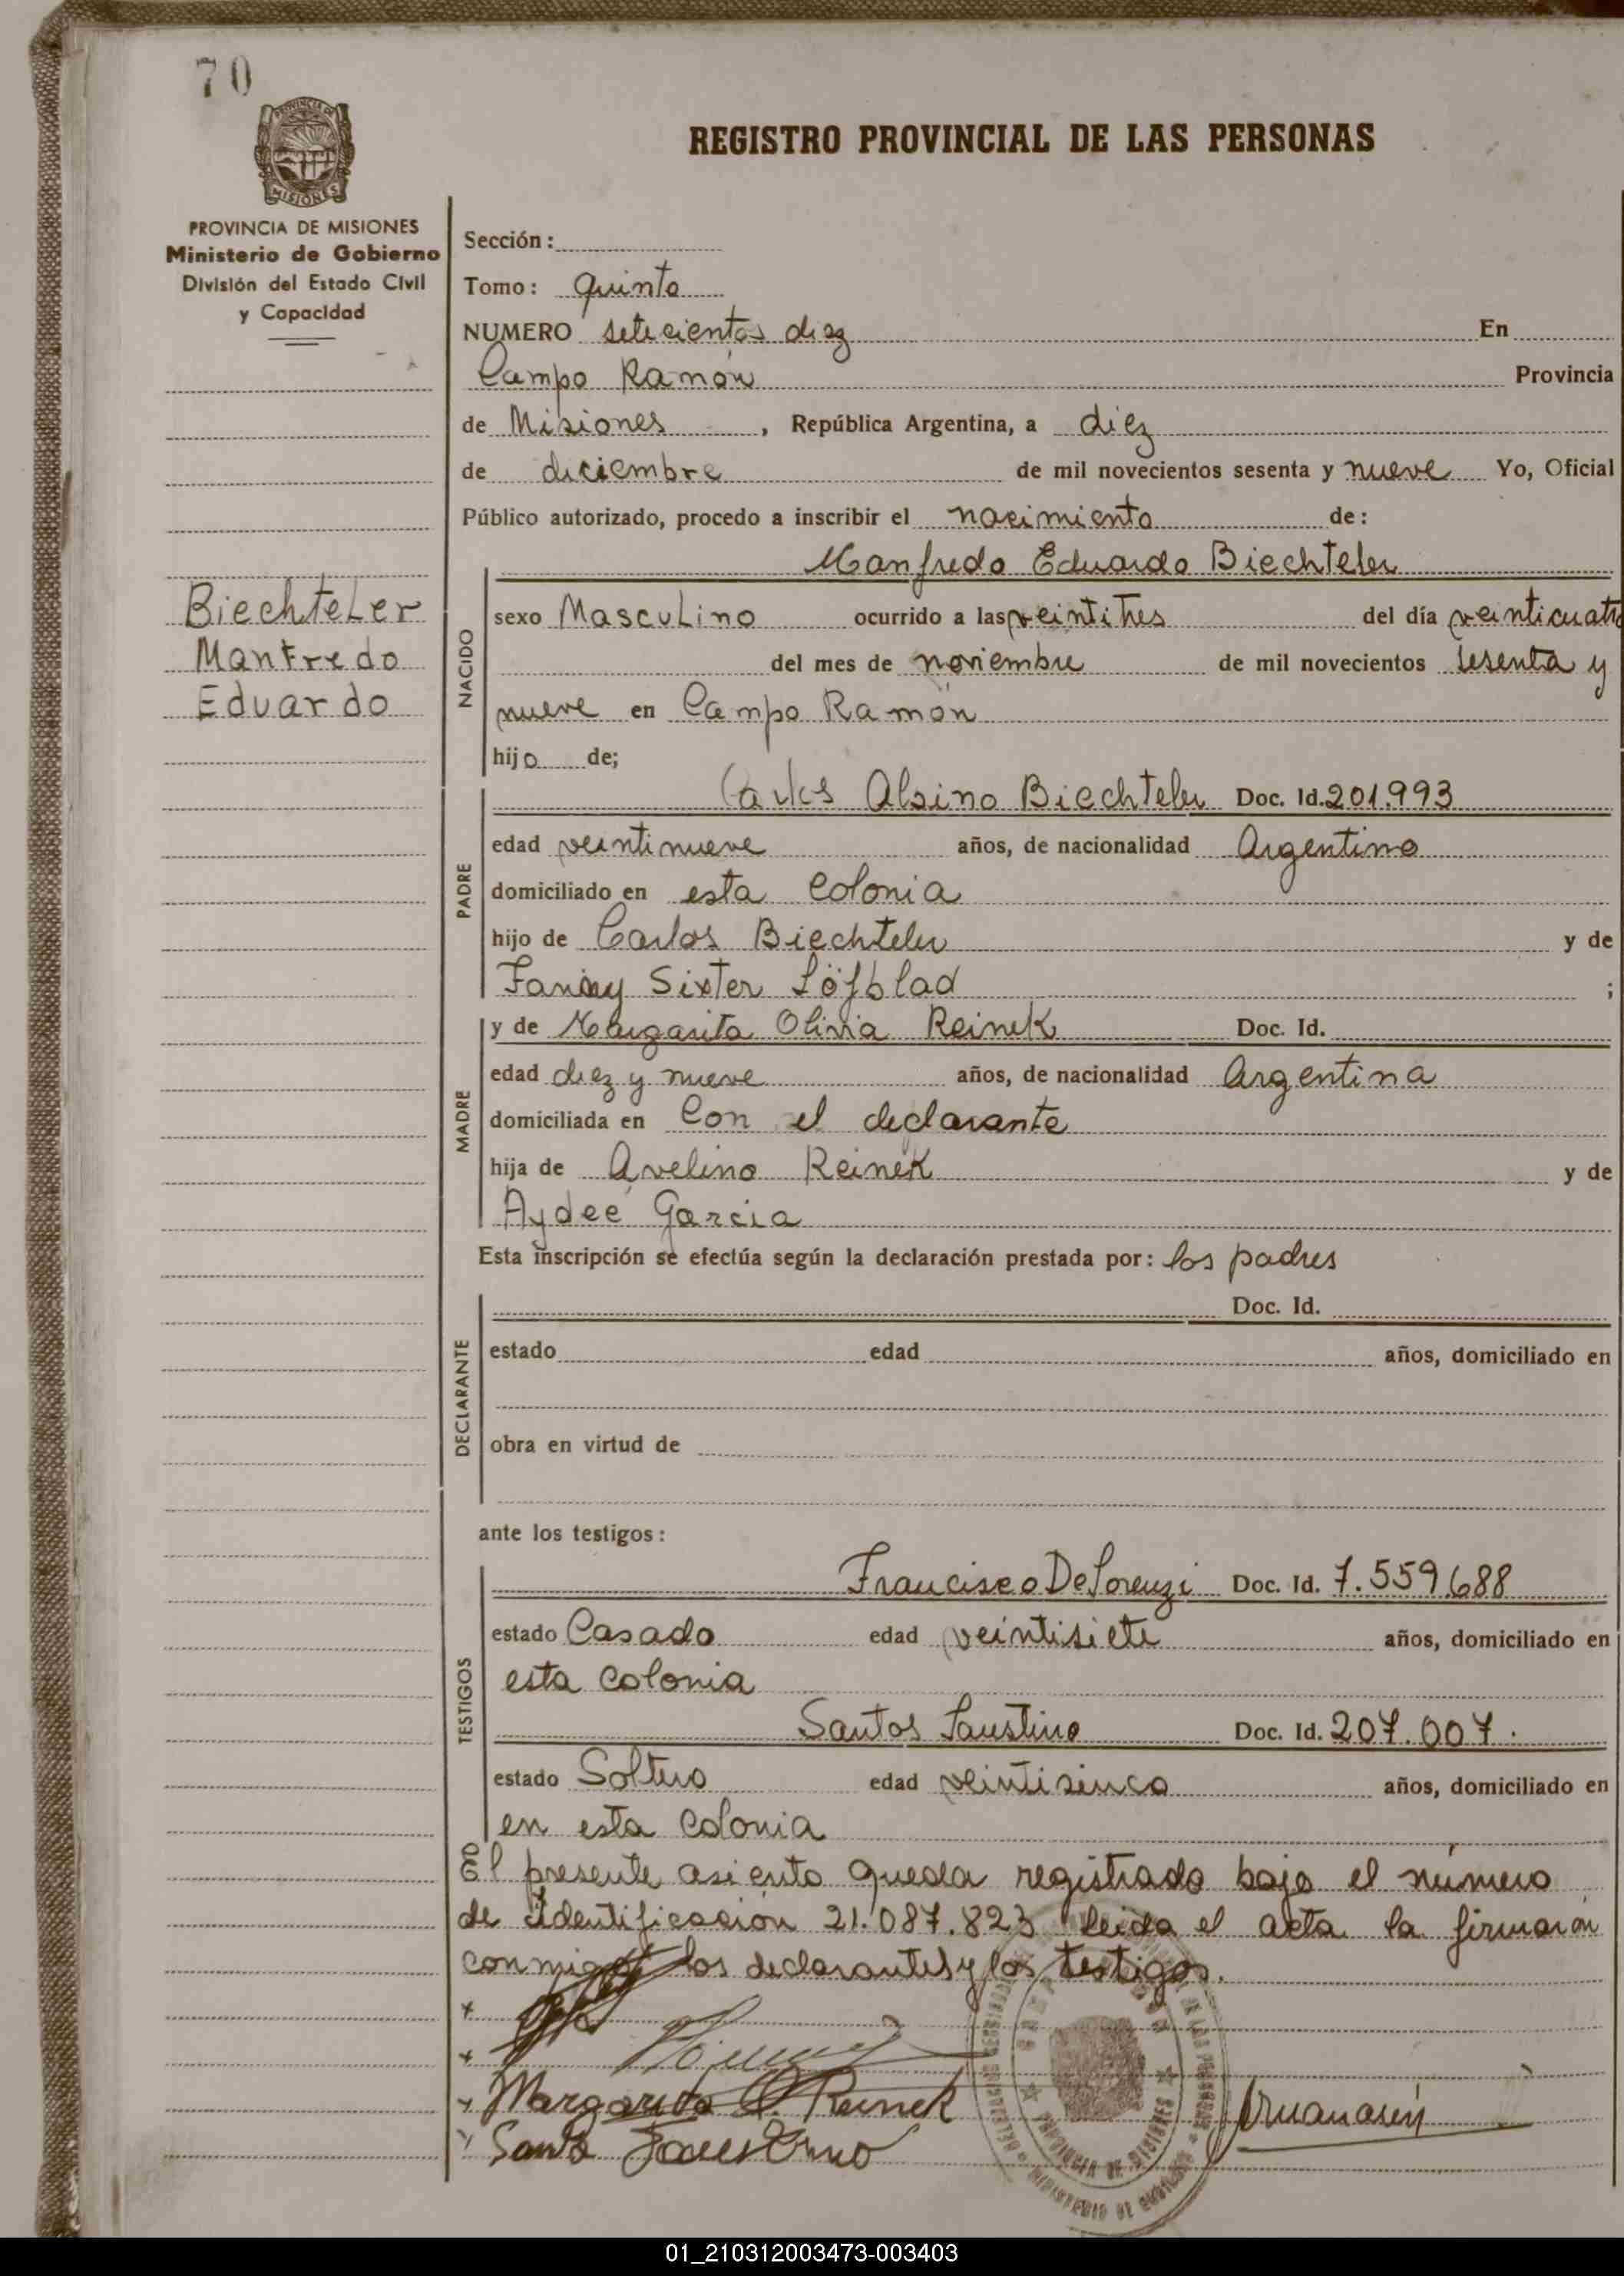 70
PROVINCIA DE
MISIONES
PROVINCIA DE MISIONES
Ministerio de Gobierno
División del Estado Civil
y Capacidad
REGISTRO PROVINCIAL DE LAS PERSONAS
Sección:
Tomo: quinto
NUMERO setecientos diez En
Campo Ramón Provincia
de Misiones, República Argentina, a diez
de diciembre de mil novecientos sesenta y nueve Yo, Oficial
Público autorizado, procedo a inscribir el nacimiento de:
Manfredo Eduardo Biechteler
Biechteler
Manfredo
Eduardo
NACIDO
sexo Masculino ocurrido a las veintitres del día veinticuatro
del mes de noviembre de mil novecientos sesenta y
nueve en Campo Ramón
hijo de;
PADRE
Carlos Alsino Biechteler Doc. Id. 201.993
edad veintinueve años, de nacionalidad Argentino
domiciliado en esta Colonia
hijo de Carlos Biechteler y de
Fanny Sixter Löfblad ;
MADRE
y de Margarita Olivia Reinek Doc. Id.
edad diez y nueve años, de nacionalidad Argentina
domiciliada en Con el declarante
hija de Avelino Reinek y de
Aydeé Garcia
Esta inscripción se efectúa según la declaración prestada por: los padres
DECLARANTE
Doc. Id.
estado edad años, domiciliado en
obra en virtud de
ante los testigos:
TESTIGOS
Francisco De Lorenzi Doc. Id. 7.559.688
estado Casado edad veintisiete años, domiciliado en
esta colonia
Santos Faustino Doc. Id. 207.007.
estado Soltero edad veintisinco años, domiciliado en
en esta Colonia
El presente asiento queda registrado bajo el número
de identificación 21.087.823 leida el acta la firmarón
conmigo los declarantes y los testigos.
Margarita O. Reinek
Santo Faustino
PROVINCIA DE MISIONES
MINISTERIO DE GOBIERNO
01_210312003473-003403